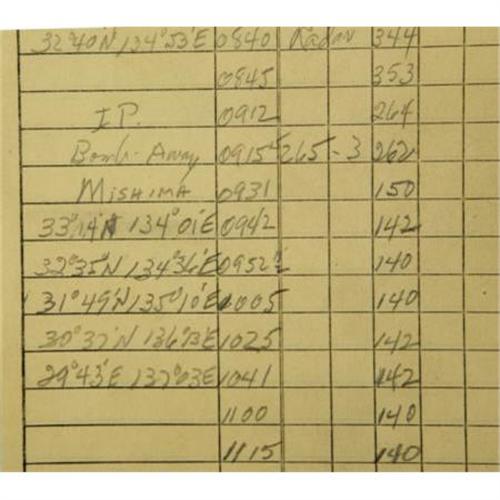 32°40'N 134°53'E 0840 Radar 344
0845 353
I.P. 0912 264
Bombs Away 0915½ 265-3 262
MISHIMA 0931 150
33°14'N 134°01'E 0942 142
32°35'N 134°36'E 0952½ 140
31°49'N 135°10'E 1005 140
30°37'N 136°13'E 1025 142
29°43'E 137°03E 1041 142
1100 140
1115 140